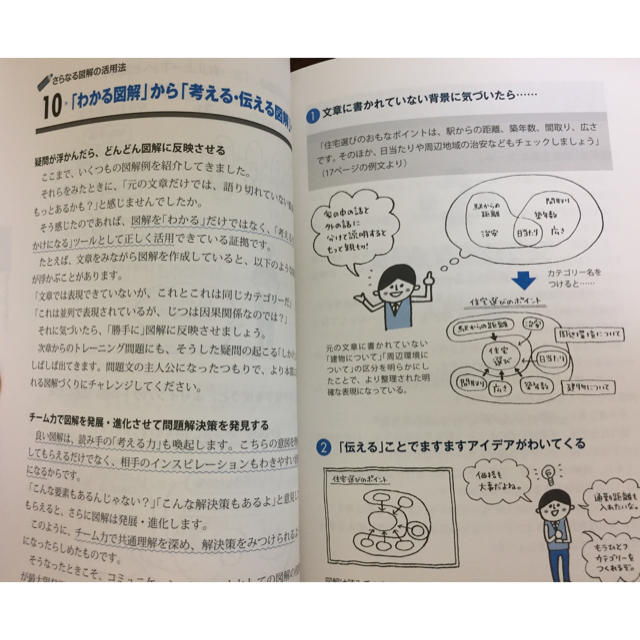 さらなる図解の活用法
10・「わかる図解」から「考える・伝える図解」
疑問が浮かんだら、どんどん図解に反映させる
ここまで、いくつもの図解例を紹介してきました。
それらをみたときに、「元の文章だけでは、語り切れていない
もっとあるかも?」と感じませんでしたか。
そう感じたのであれば、図解を「わかる」だけではなく、「考える
かけになる」ツールとして正しく活用できている証拠です。
たとえば、文章をみながら図解を作成していると、以下のような
が浮かぶことがあります。
「文章では表現できていないが、これとこれは同じカテゴリーだ
「これは並列で表現されているが、じつは因果関係なのでは?」
それに気づいたら、「勝手に」図解に反映させましょう。
次章からのトレーニング問題にも、そうした疑問の起こる「しか
しばし出てきます。問題文の主人公になったつもりで、より本
れる図解づくりにチャレンジしてください。
チーム力で図解を発展・進化させて問題解決策を発見する
良い図解は、読み手の「考える力」も喚起します。こちらの意図を
してもらえるだけでなく、相手のインスピレーションもわきやすい
になるからです。
「こんな要素もあるんじゃない?」「こんな解決策もあるよ」と意見
もらえると、さらに図解は発展・進化します。
このように、チーム力で共通理解を深め、解決策をみつけられるよ
になったらしめたものです。
そうなったときこそ、コミュニケーション
としての図解の
1 文章に書かれていない背景に気づいたら……
「住宅選びのおもなポイントは、駅からの距離、築年数、間取り、広さ
です。そのほか、日当たりや周辺地域の治安などもチェックしましょう」
(17ページの例文より)
家の中の話と
外の話に
分けて説明すると
もっと親切!
駅からの
距離
治安
日当たり
間取り
築年数
広さ
カテゴリー名を
つけると……
住宅選びのポイント
駅からの距離
治安
周辺環境について
住宅
選び
日当たり
間取り
広さ
築年数
建物について
元の文章に書かれていない
「建物について」「周辺環境に
ついて」の区分を明らかにし
たことで、より整理された明
確な表現になっている。
2 「伝える」ことでますますアイデアがわいてくる
住宅選びのポイント
価格も
大事だよね。
通勤距離も
入れたいな。
もうひとつ
カテゴリーを
つくれるぞ。